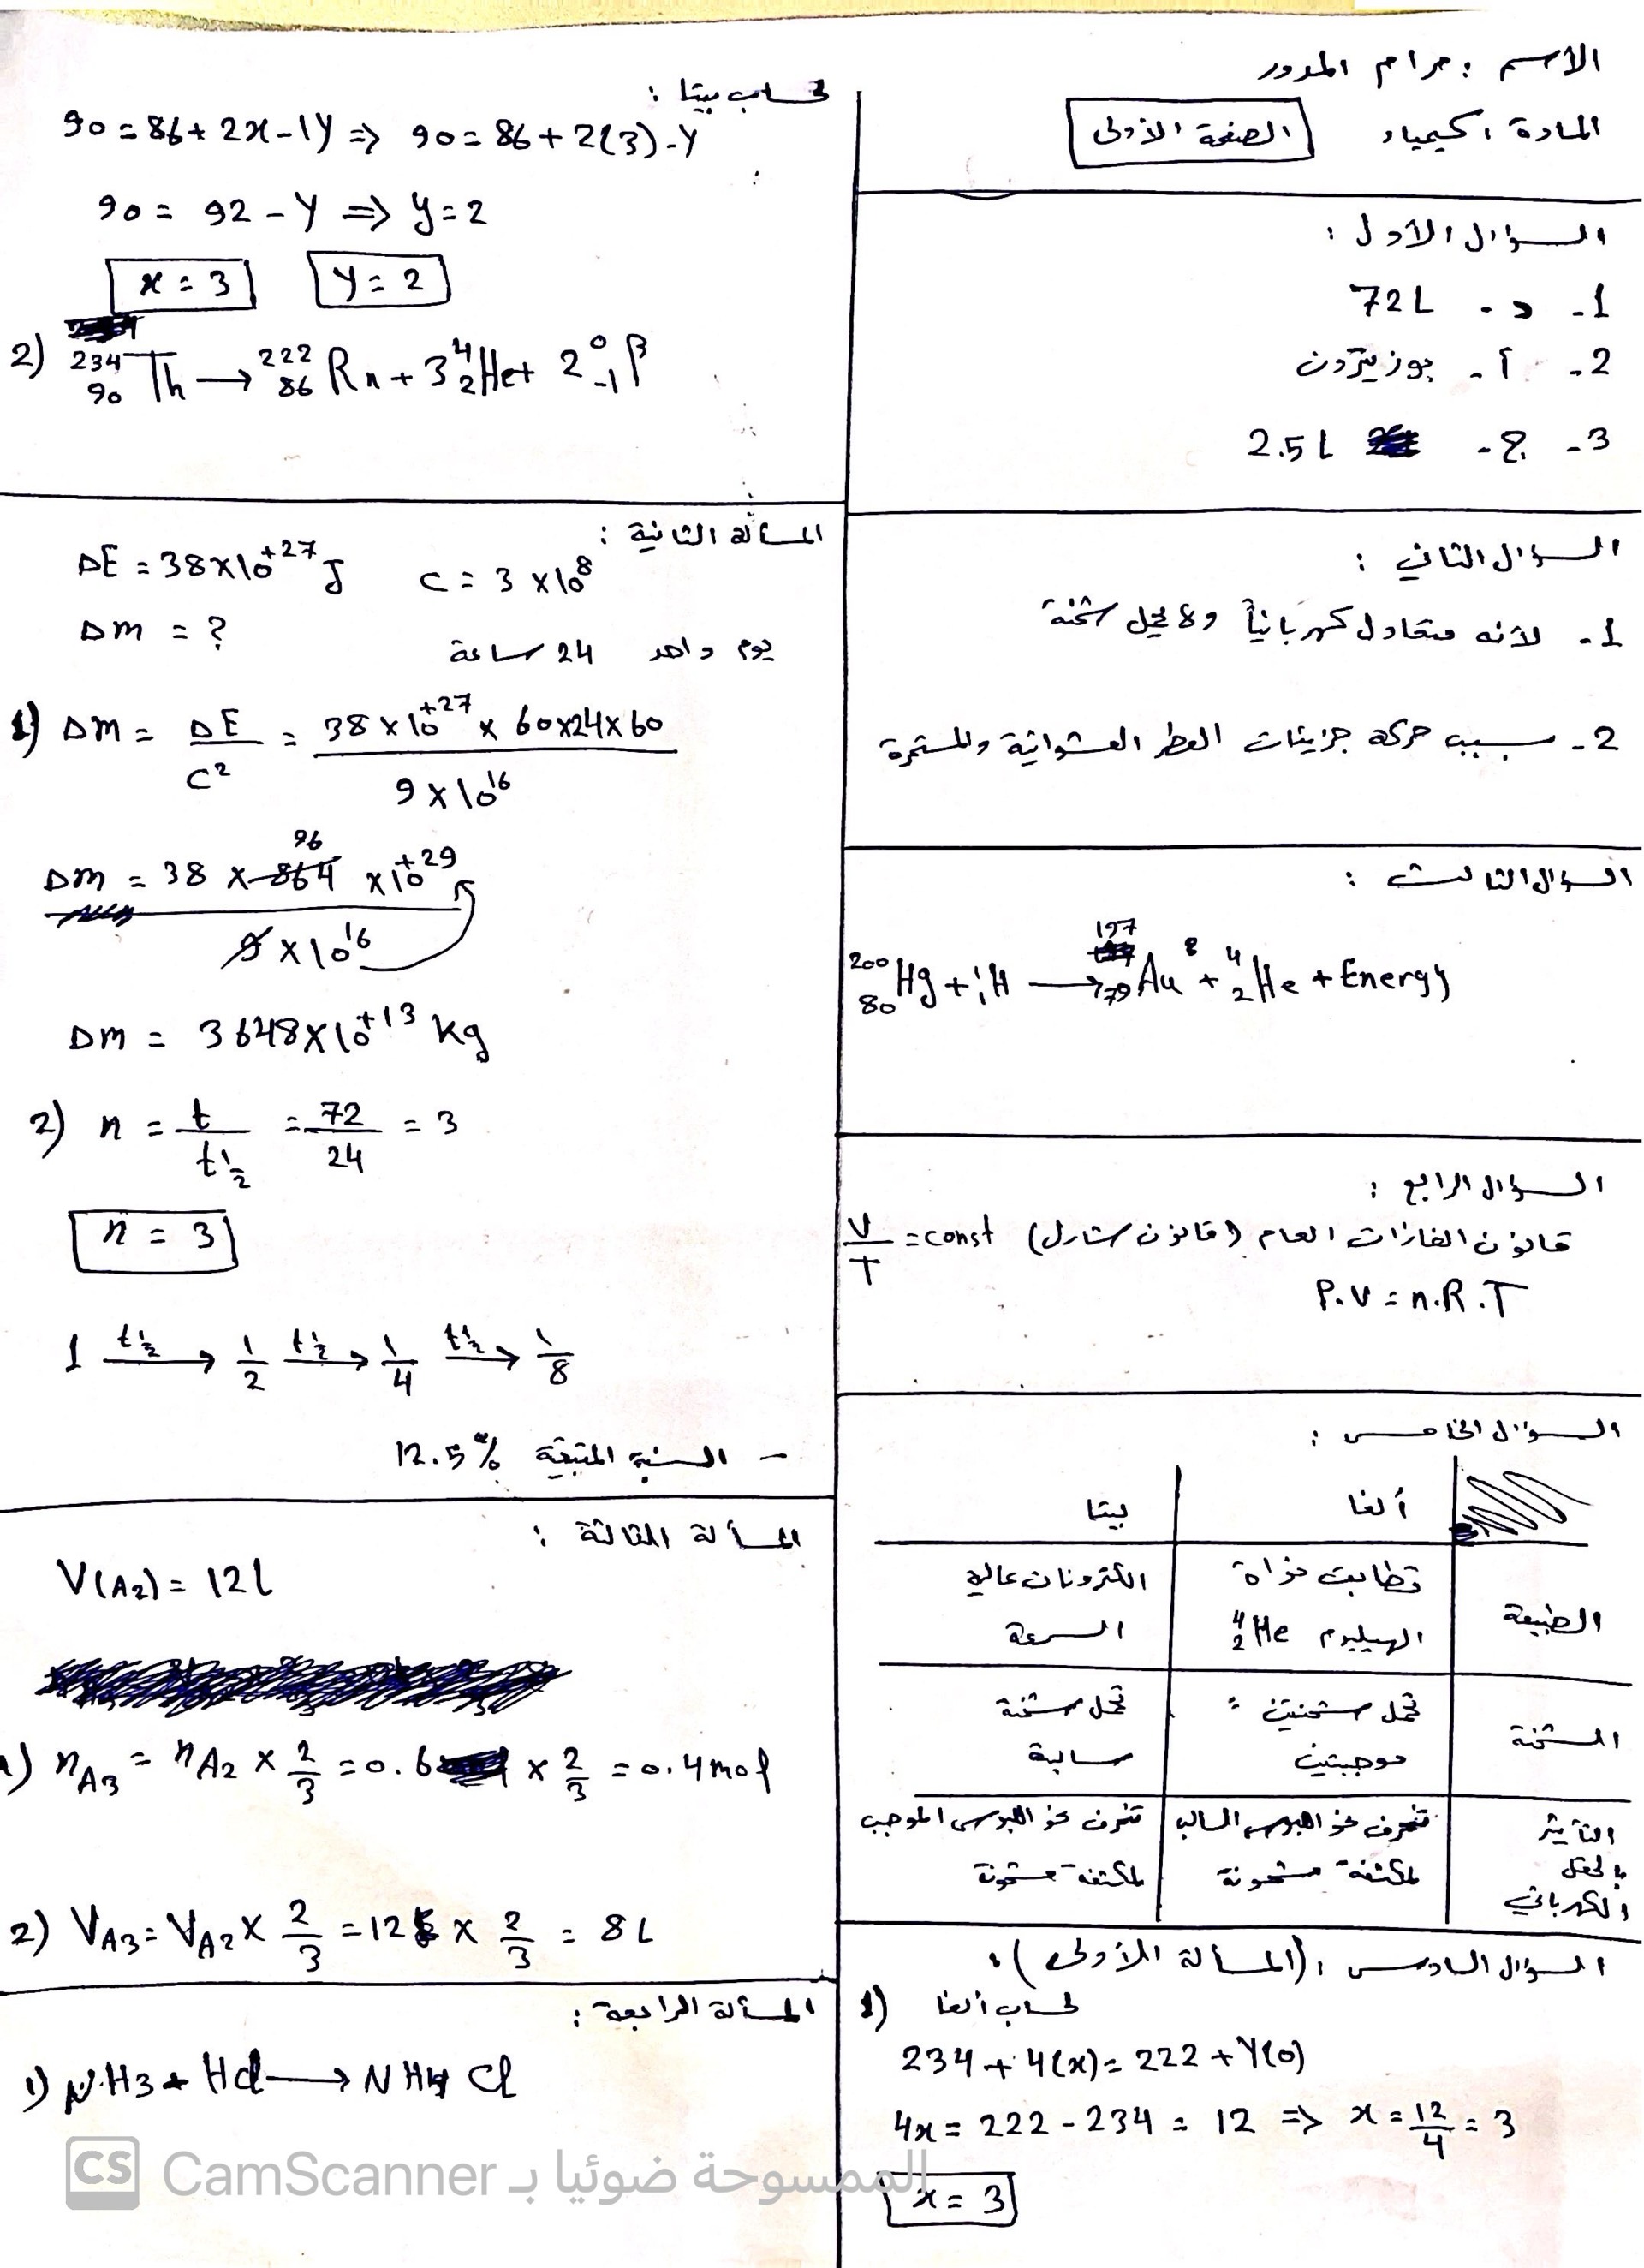 الاسم : مرام المدور
المادة : كيمياء
الصفحة الأولى
السؤال الأول :
1- د- 72L
2- أ- بوزيترون
3- ج- 2.5L
السؤال الثاني :
1- لأنه متعادل كهربائياً ولا يحمل شحنة
2- بسبب حركة جزيئات العطر العشوائية والمستمرة
السؤال الثالث :
²⁰⁰₈₀Hg + ¹₁H → ¹⁹⁷₇₉Au + ⁴₂He + Energy
السؤال الرابع :
قانون الغازات العام (قانون شارل) V/T = const
P.V = n.R.T
السؤال الخامس :
ألفا بيتا
الطبيعة
تطابق نواة
الهيليوم ⁴₂He
الكترونات عالية
السرعة
الشحنة
تحمل شحنتين
موجبتين
تحمل شحنة
سالبة
التأثير
بالحقل
الكهربائي
تنحرف نحو اللبوس السالب
لمكثفة مشحونة
تنحرف نحو اللبوس الموجب
لمكثفة مشحونة
السؤال السادس : (المسألة الأولى) :
1) لحساب ألفا
234 + 4(x) = 222 + Y(0)
4x = 222 - 234 = 12 ⇒ x = 12/4 = 3
x = 3
لحساب بيتا :
90 = 86 + 2x - 1Y ⇒ 90 = 86 + 2(3) - Y
90 = 92 - Y ⇒ y = 2
x = 3 Y = 2
2) ²³⁴₉₀Th → ²²²₈₆Rn + 3⁴₂He + 2⁰₋₁β
المسألة الثانية :
ΔE = 38×10⁺²⁷ J C = 3×10⁸
Δm = ?
يوم واحد 24 ساعة
1) Δm = ΔE/C² = 38×10⁺²⁷ × 60×24×60 / 9×10¹⁶
Δm = 38 × 864 96 ×10⁺²⁹ / 9×10¹⁶
Δm = 3648×10⁺¹³ kg
2) n = t/t½ = 72/24 = 3
n = 3
1 →(t½) 1/2 →(t½) 1/4 →(t½) 1/8
- النسبة المتبقية 12.5%
المسألة الثالثة :
V(A2) = 12L
1) nA3 = nA2 × 2/3 = 0.6 × 2/3 = 0.4 mol
2) VA3 = VA2 × 2/3 = 12 × 2/3 = 8L
المسألة الرابعة :
1) NH3 + Hcl → NH4 Cl
CS الممسوحة ضوئيا بـ CamScanner